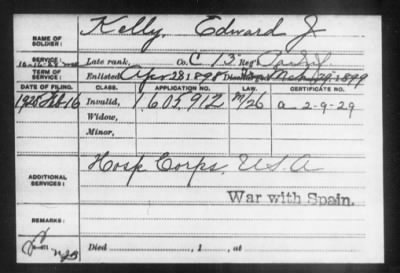 NAME OF SOLDIER: Kelly, Edward J
SERVICE: Late rank, Co. C 13 Reg't
TERM OF SERVICE: Enlisted Apr 28 1898 Mch 1899
DATE OF FILING. CLASS. APPLICATION NO. LAW. CERTIFICATE NO.
1928 Feb 16 Invalid, 1,605,912 a 2-9-29
Widow,
Minor,
ADDITIONAL SERVICES: Hosp Corps, U.S.A
War with Spain.
REMARKS:
Died , 1 , at